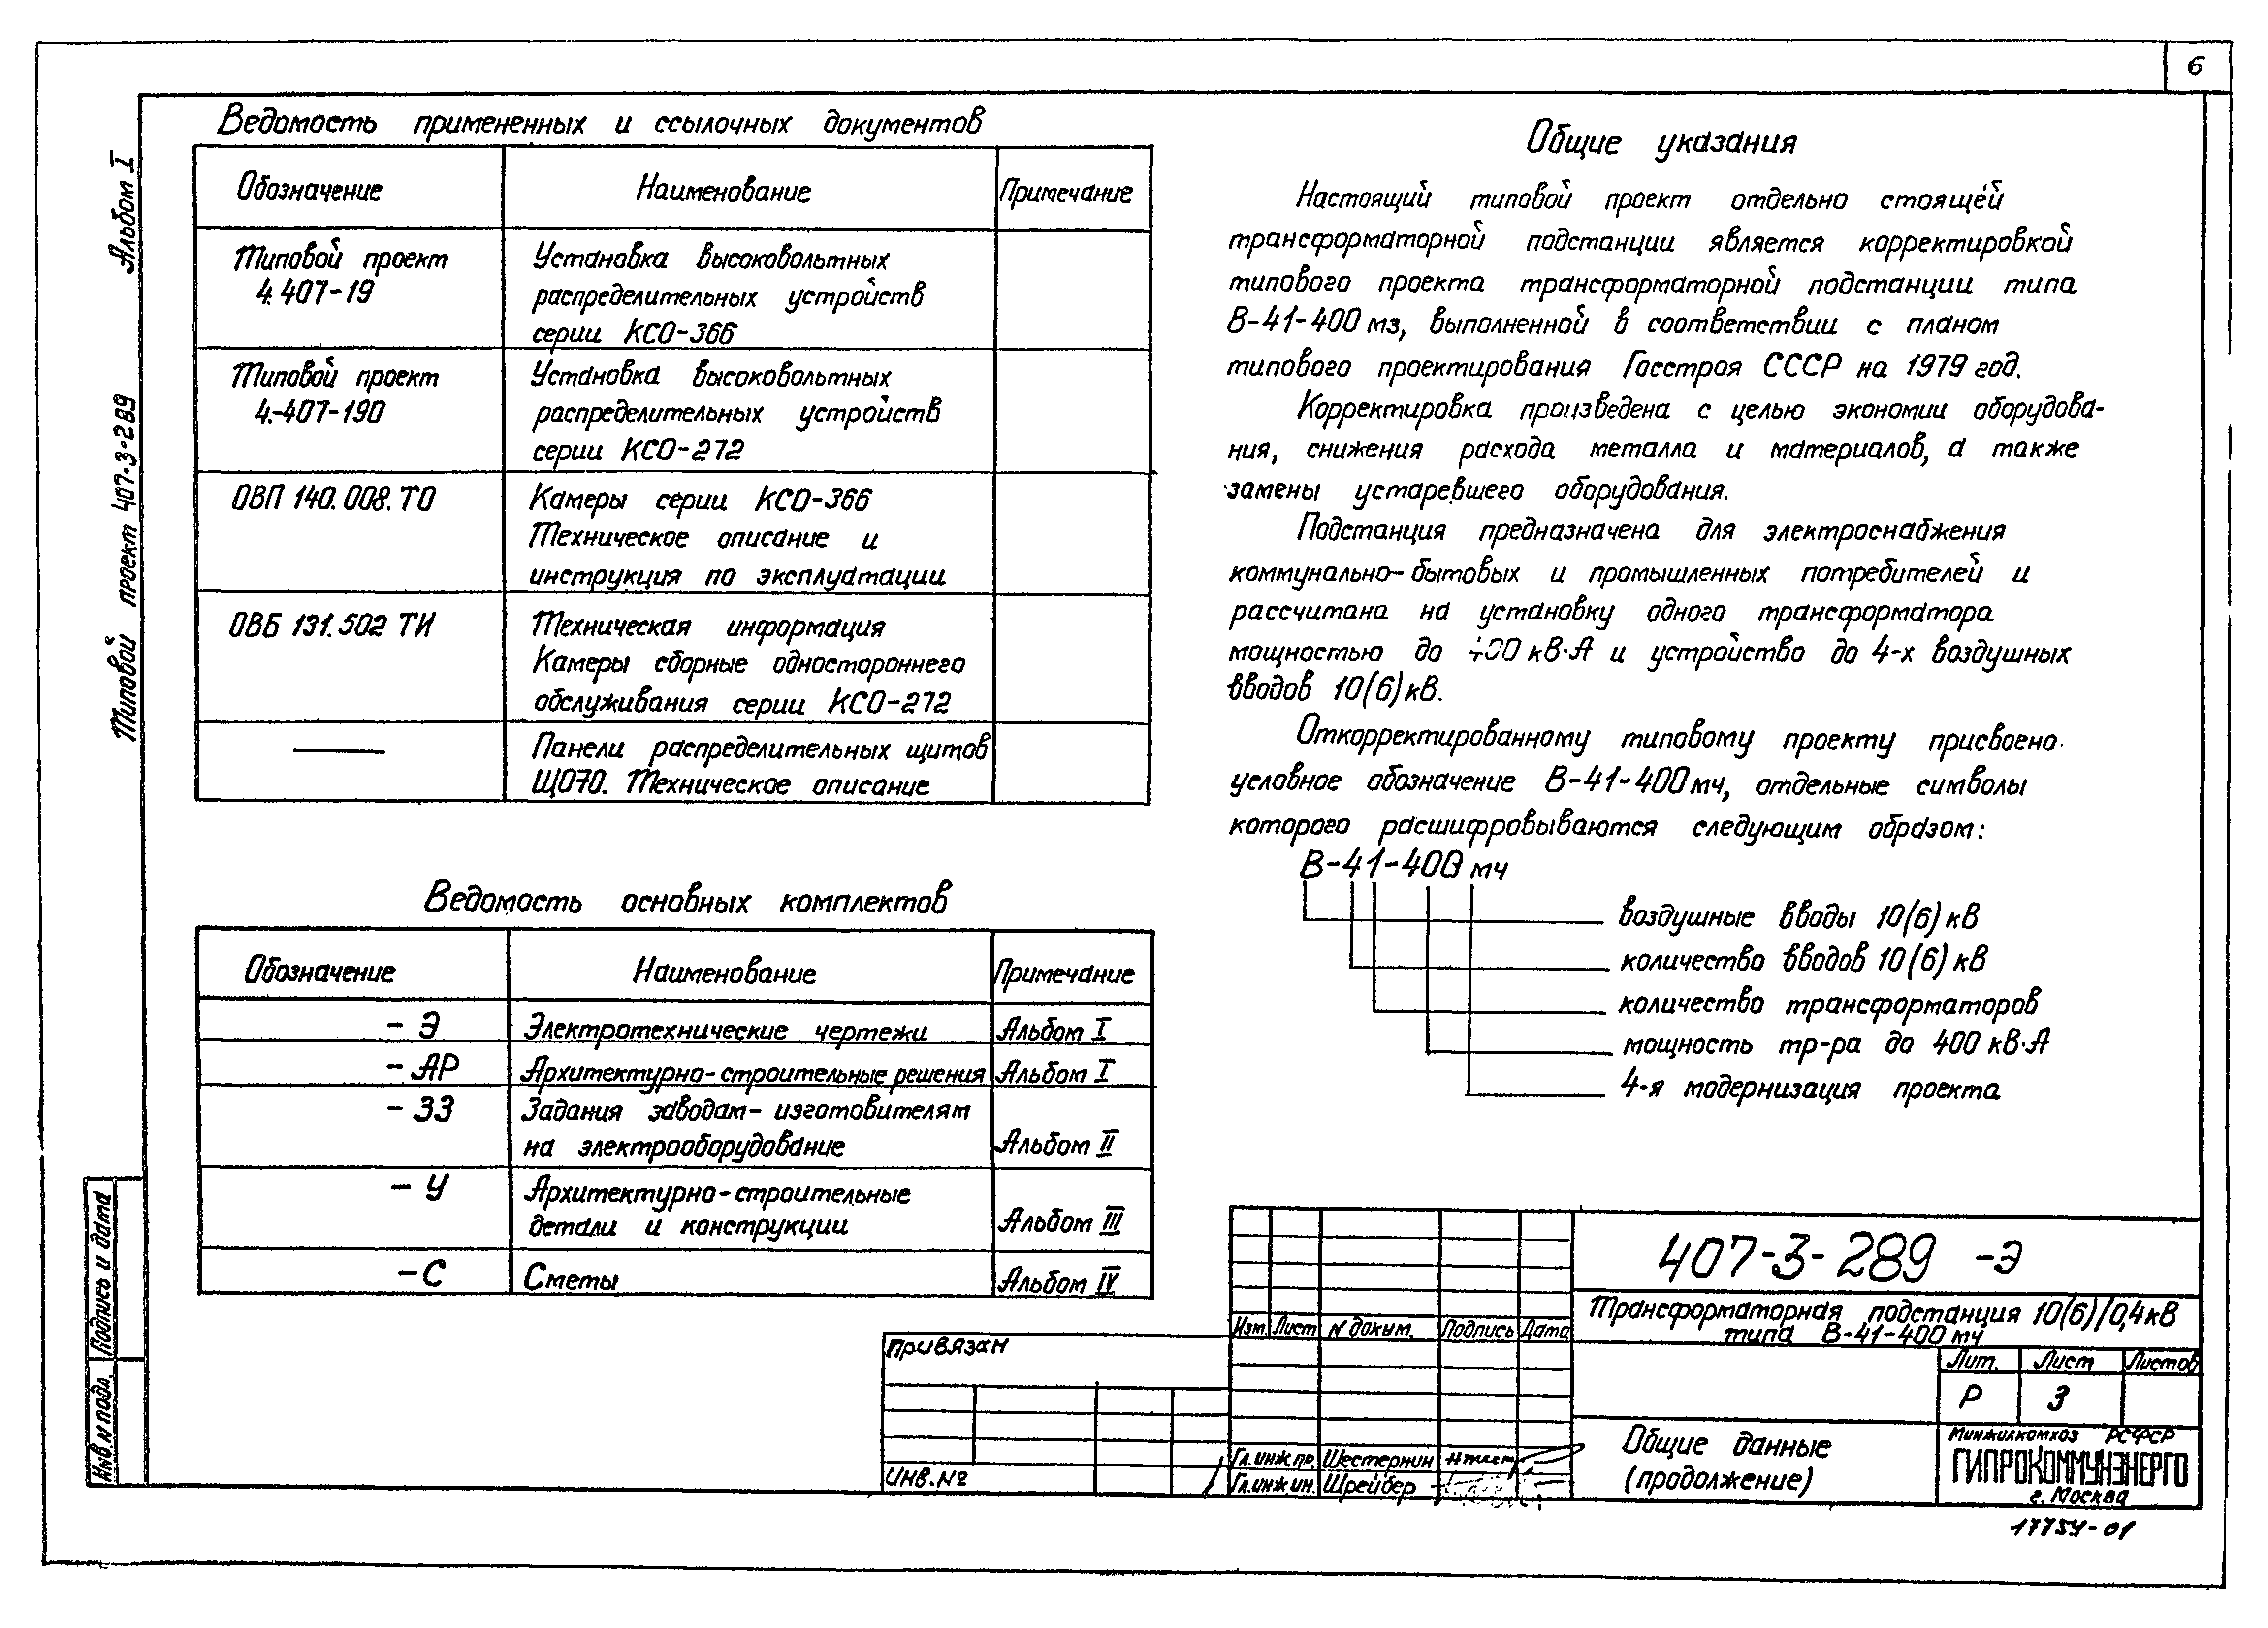 6
Альбом I
Типовой проект 407-3-289
Ведомость примененных и ссылочных документов
Обозначение Наименование Примечание
Типовой проект 4.407-19 Установка высоковольтных
распределительных устройств
серии КСО-366
Типовой проект 4.-407-190 Установка высоковольтных
распределительных устройств
серии КСО-272
ОВП 140.008.ТО Камеры серии КСО-366
Техническое описание и
инструкция по эксплуатации
ОВБ 131.502 ТИ Техническая информация
Камеры сборные одностороннего
обслуживания серии КСО-272
Панели распределительных щитов
ЩО70. Техническое описание
Ведомость основных комплектов
Обозначение Наименование Примечание
- Э Электротехнические чертежи Альбом I
- АР Архитектурно-строительные решения Альбом I
- ЗЗ Задания заводам-изготовителям
на электрооборудование Альбом II
- У Архитектурно-строительные
детали и конструкции Альбом III
- С Сметы Альбом IV
Общие указания
Настоящий типовой проект отдельно стоящей
трансформаторной подстанции является корректировкой
типового проекта трансформаторной подстанции типа
В-41-400мз, выполненной в соответствии с планом
типового проектирования Госстроя СССР на 1979 год.
Корректировка произведена с целью экономии оборудова-
ния, снижения расхода металла и материалов, а также
замены устаревшего оборудования.
Подстанция предназначена для электроснабжения
коммунально-бытовых и промышленных потребителей и
рассчитана на установку одного трансформатора
мощностью до 400 кВ·А и устройство до 4-х воздушных
вводов 10(6)кВ.
Откорректированному типовому проекту присвоено
условное обозначение В-41-400мч, отдельные символы
которого расшифровываются следующим образом:
В-41-400 мч
воздушные вводы 10(6)кВ
количество вводов 10(6)кВ
количество трансформаторов
мощность тр-ра до 400 кВ·А
4-я модернизация проекта
407-3-289 -Э
Трансформаторная подстанция 10(6)/0,4кВ
типа В-41-400 мч
Изм. Лист N докум. Подпись Дата
Лит. Лист Листов
Р 3
Гл.инж.пр. Шестернин
Гл.инж ин. Шрейбер
Общие данные
(продолжение)
Минжилкомхоз РСФСР
ГИПРОКОММУНЭНЕРГО
г. Москва
17754-01
Привязан
Инв.№
Подпись и дата
Инв.N подл.